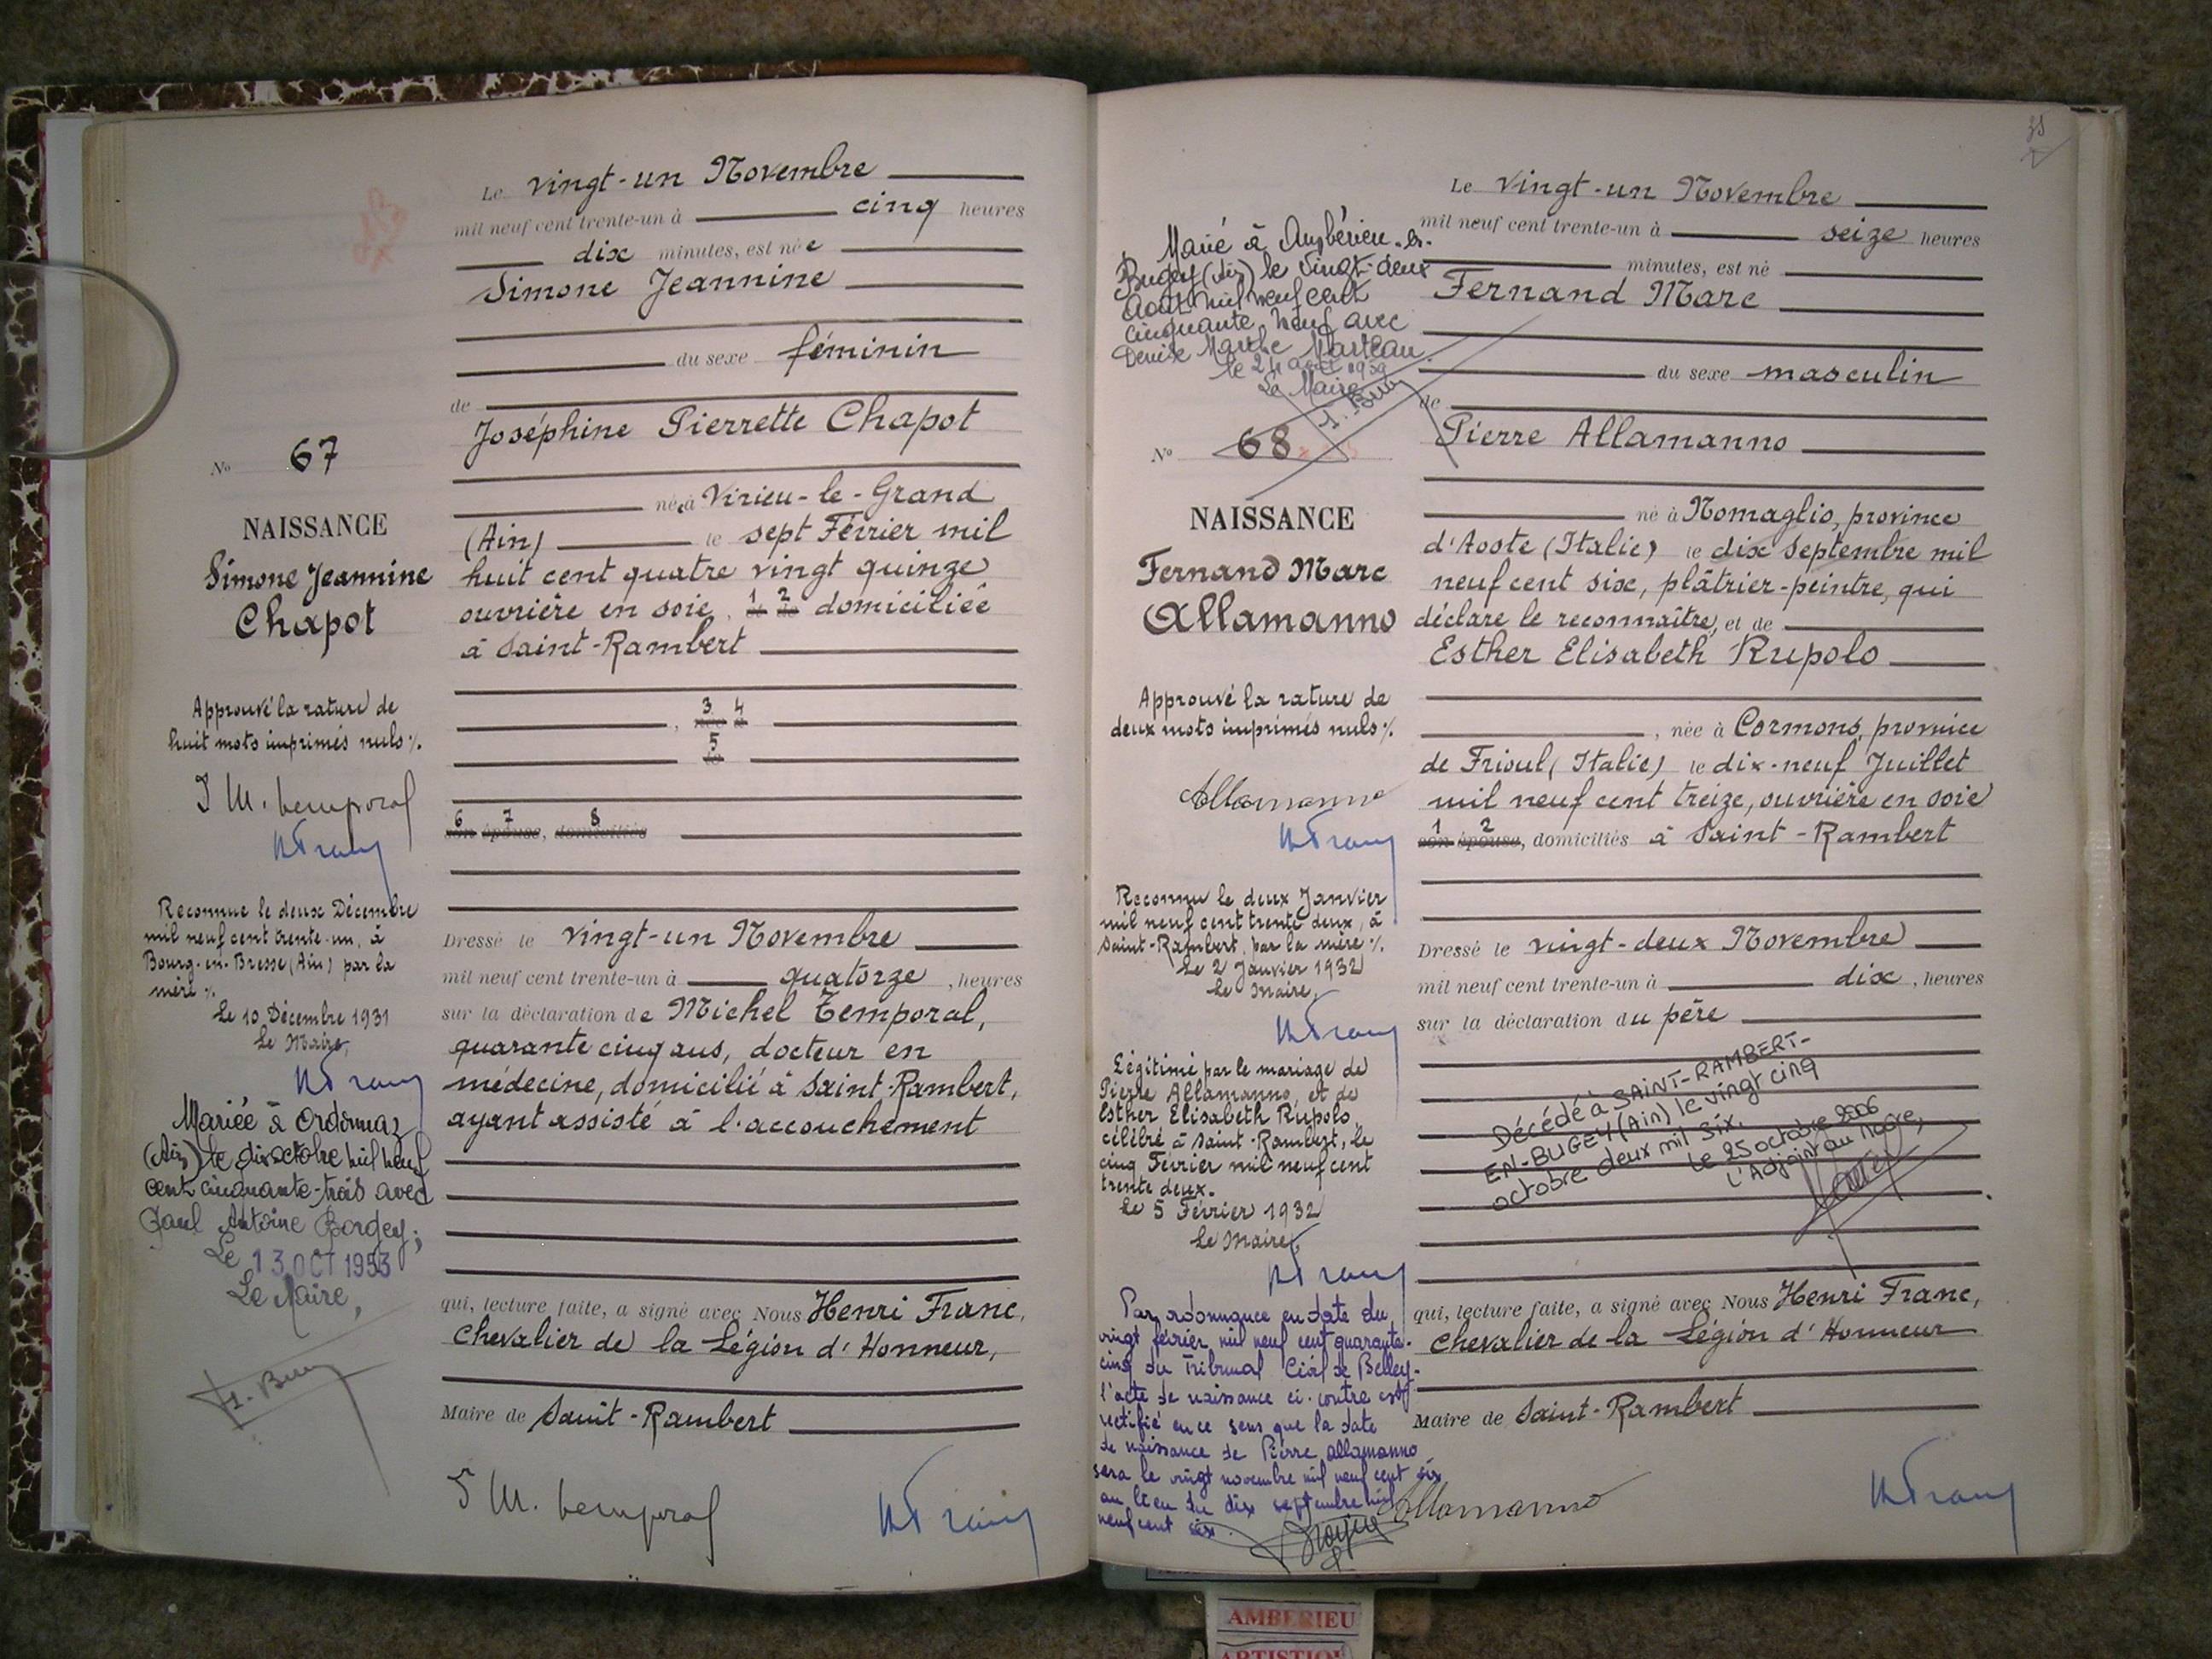 Le vingt-un Novembre
mil neuf cent trente-un à cinq heures
dix minutes, est née
Simone Jeannine
du sexe féminin
de
Joséphine Pierrette Chapot
née à Virieu-le-Grand
(Ain) le sept Février mil
huit cent quatre vingt quinze
ouvrière en soie, 1 2 domiciliée
à Saint-Rambert
3 4
5
6 7 8
son épouse, domiciliés
Dressé le vingt-un Novembre
mil neuf cent trente-un à quatorze, heures
sur la déclaration de Michel Temporal,
quarante cinq ans, docteur en
médecine, domicilié à Saint-Rambert,
ayant assisté à l'accouchement
qui, lecture faite, a signé avec Nous Henri Franc,
Chevalier de la Légion d'Honneur,
Maire de Saint-Rambert
No 67
NAISSANCE
Simone Jeannine
Chapot
Approuvé la rature de
huit mots imprimés nuls %.
Reconnue le deux Décembre
mil neuf cent trente-un, à
Bourg-en-Bresse (Ain) par la
mère %.
Le 10 Décembre 1931
Le Maire,
Mariée à Ordonnaz
(Ain) le dix octobre mil neuf
cent cinquante-trois avec
Paul Antoine Borgey;
Le 13 OCT 1953
Le Maire,
Le vingt-un Novembre
mil neuf cent trente-un à seize heures
minutes, est né
Fernand Marc
du sexe masculin
de
Pierre Allamanno
né à Nomaglio, province
d'Aoste (Italie) le dix septembre mil
neuf cent six, plâtrier-peintre, qui
déclare le reconnaître, et de
Esther Elisabeth Rupolo
, née à Cormons, province
de Frioul (Italie) le dix-neuf Juillet
mil neuf cent treize, ouvrière en soie
1 2
son épouse, domiciliés à Saint-Rambert
Dressé le vingt-deux Novembre
mil neuf cent trente-un à dix, heures
sur la déclaration du père
Décédé à SAINT-RAMBERT-
EN-BUGEY (Ain) le vingt cinq
octobre deux mil six.
Le 25 octobre 2006
L'Adjoint au Maire,
qui, lecture faite, a signé avec Nous Henri Franc,
Chevalier de la Légion d'Honneur
Maire de Saint-Rambert
Allamanno
Marié à Ambérieu-en-
Bugey (Ain) le vingt-deux
Août mil neuf cent
cinquante neuf avec
Denise Marthe Marteau.
le 24 août 1959
Le Maire
No 68
NAISSANCE
Fernand Marc
Allamanno
Approuvé la rature de
deux mots imprimés nuls %.
Allamanno
Reconnu le deux Janvier
mil neuf cent trente deux, à
Saint-Rambert, par la mère %.
Le 2 Janvier 1932
Le Maire,
Légitimé par le mariage de
Pierre Allamanno, et de
Esther Elisabeth Rupolo
célébré à Saint-Rambert, le
cinq Février mil neuf cent
trente deux.
Le 5 Février 1932
Le Maire,
Par ordonnance en date du
vingt février mil neuf cent quarante-
cinq du Tribunal Civil de Belley
l'acte de naissance ci-contre est
rectifié en ce sens que la date
de naissance de Pierre Allamanno
sera le vingt novembre mil neuf cent six
au lieu du dix septembre mil
neuf cent six.
AMBERIEU